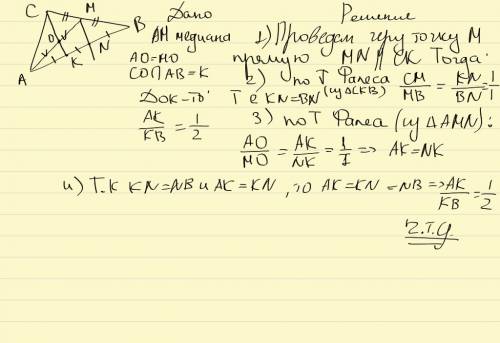 C M B O A K N
Дано
АМ медиана
AO=MO
CO∩AB=K
Док-ть:
AK/KB = 1/2
Решение
1) Проведем через точку М
прямую MN || CK Тогда:
2) по Т Фалеса (из ΔCKB) CM/MB = KN/BN = 1/1
Т е KN=BN
3) по Т Фалеса (из ΔAMN):
AO/MO = AK/NK = 1/1 => AK=NK
4) Т.к KN=NB и AK=KN, то AK=KN=NB => AK/KB = 1/2
Ч.Т.Д